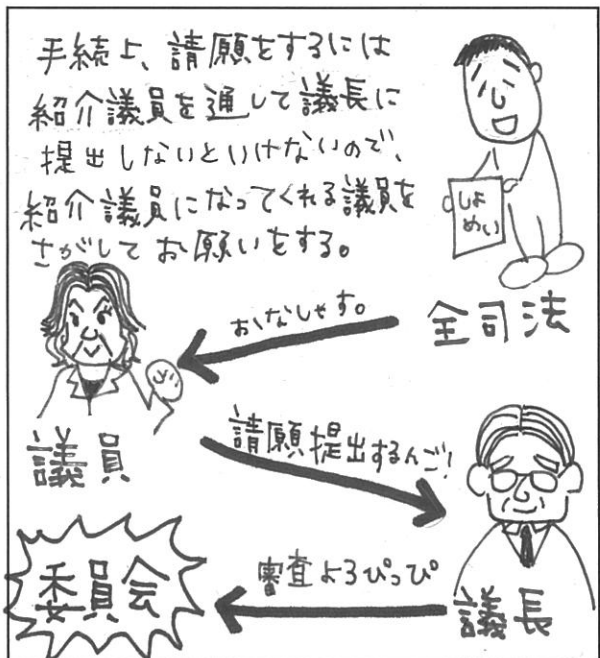 手続上、請願をするには
紹介議員を通して議長に
提出しないといけないので、
紹介議員になってくれる議員を
さがしてお願いをする。
しょ
めい
全司法
おなしゃす。
議員
請願提出するんご!
議長
審査よろぴっぴ
委員会